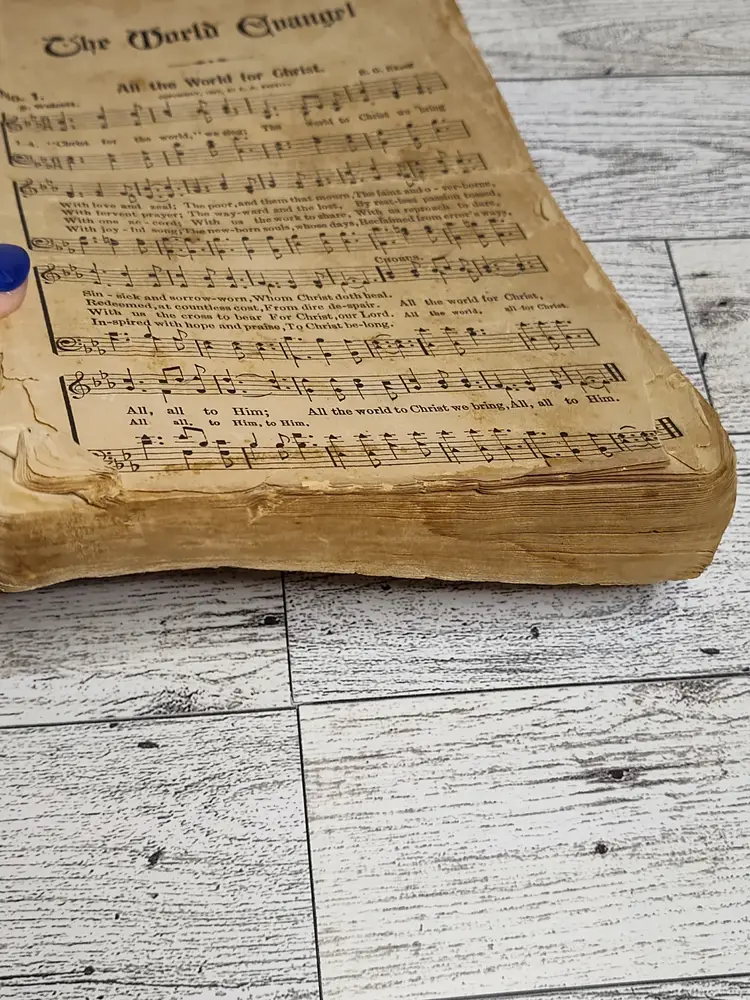 The World Evangel
All the World for Christ.
No. 1.
1-4. "Christ for the world," we sing; The world to Christ we bring
With love and zeal; The poor, and them that mourn, The faint and o - ver-borne,
With fervent prayer; The way-ward and the lost, By rest-less passion tossed,
With one ac - cord; With us the work to share, With us reproach to dare,
With joy - ful song; The new-born souls, whose days, Reclaimed from error's ways,
CHORUS.
Sin - sick and sorrow-worn, Whom Christ doth heal.
Redeemed, at countless cost, From dire de-spair. All the world for Christ,
With us the cross to bear For Christ, our Lord. All the world, all for Christ.
In-spired with hope and praise, To Christ be-long.
All, all to Him; All the world to Christ we bring, All, all to Him.
All all, to Him, to Him.